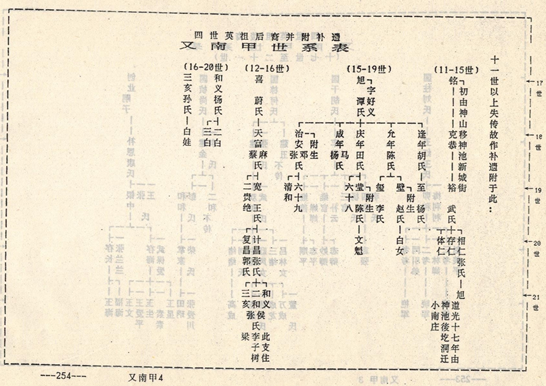 四世英祖后裔并附补遗
又南甲世系表
十一世以上失传故作补遗附于此：
(11-15世)
铭
初由神山移神池新城街
克恭
裕
武氏
相仁张氏
旭
存仁
体仁
道光十七年由
神池後圪洞迁
小南庄
(15-19世)
旭
谭氏
字好义
逢年胡氏
至
杨氏
允年陈氏
璧
赵氏
附生
白女
玺
李氏
庆年田氏
莹
陈氏
附生
文魁
六十八
成年杨
马氏
治安张
邓氏
附生
清和
六十九
(12-16世)
喜
蔚氏
天富蔡
麻氏
宽
王氏
计昌张氏
二和张氏
和义侯氏
李子树
此支住
梁
三亥
复昌郭氏
二贵绝
(16-20世)
和义杨氏
二白
三白
三亥孙氏
白娃
17世
18世
19世
20世
21世
254
又南甲4